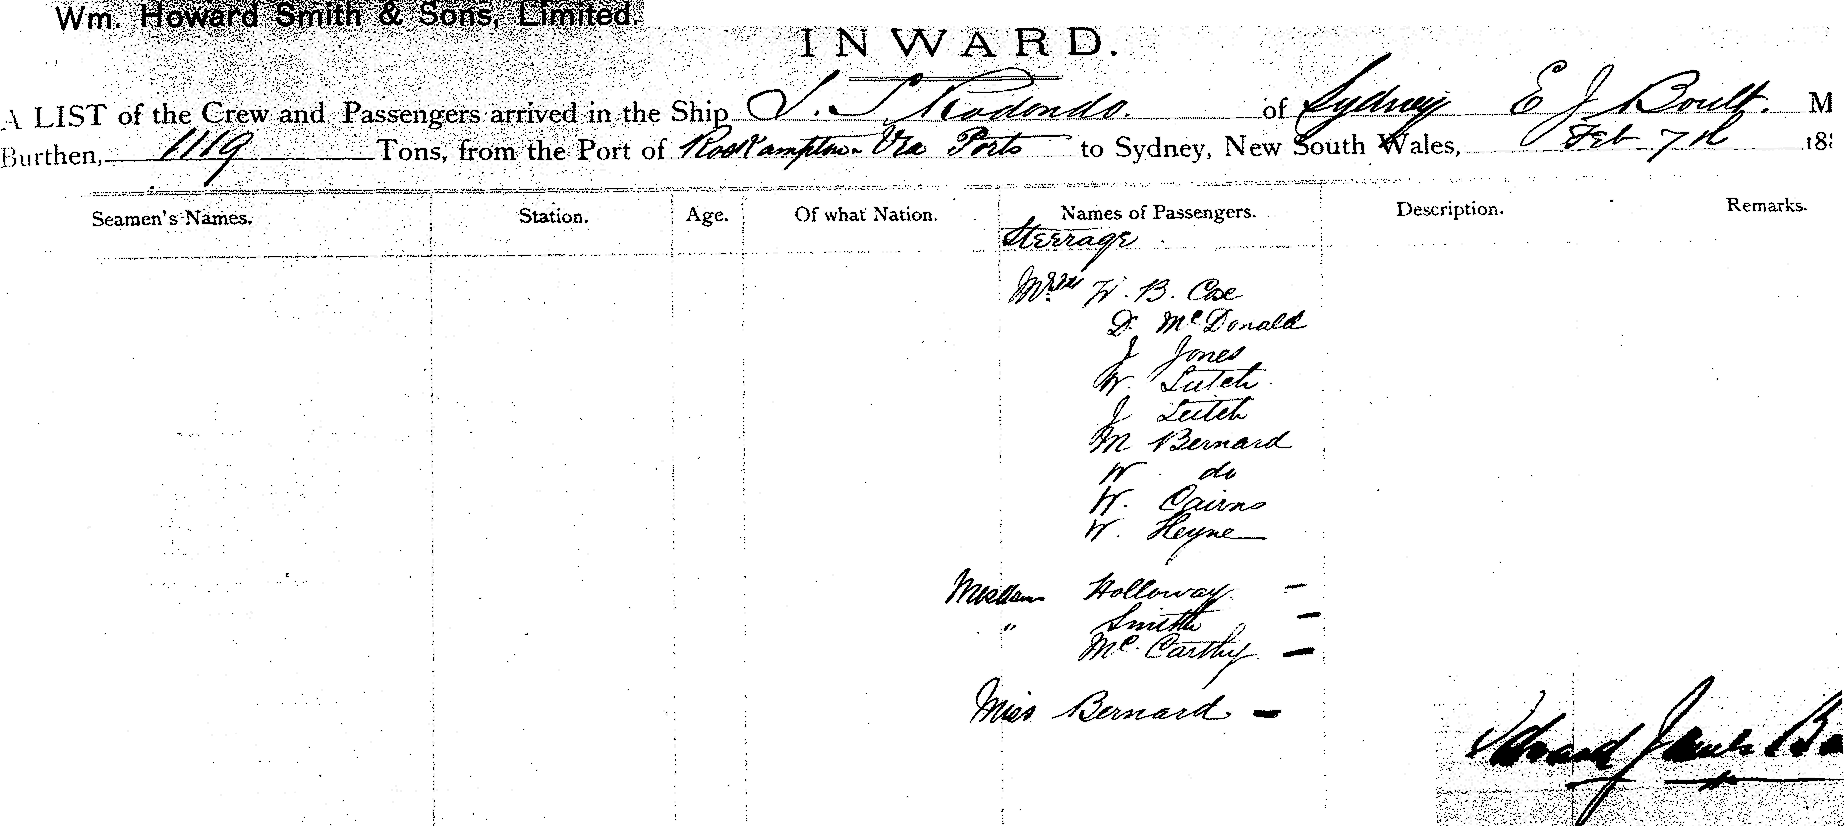 Wm. Howard Smith & Sons, Limited.
INWARD.
A LIST of the Crew and Passengers arrived in the Ship S. S. Rodondo. of Sydney E J Boult. M
Burthen, 1119 Tons, from the Port of Rockhampton Via Ports to Sydney, New South Wales, Feb 7th 188
Seamen's Names. Station. Age. Of what Nation. Names of Passengers. Description. Remarks.
Steerage
W. B. Coe
D. McDonald
J Jones
W. Leitch
J Leitch
M Bernard
W do
W. Cairns
W. Heyne
Mesdam Holloway -
" Smith -
McCarthy -
Miss Bernard -
Edward James Bo